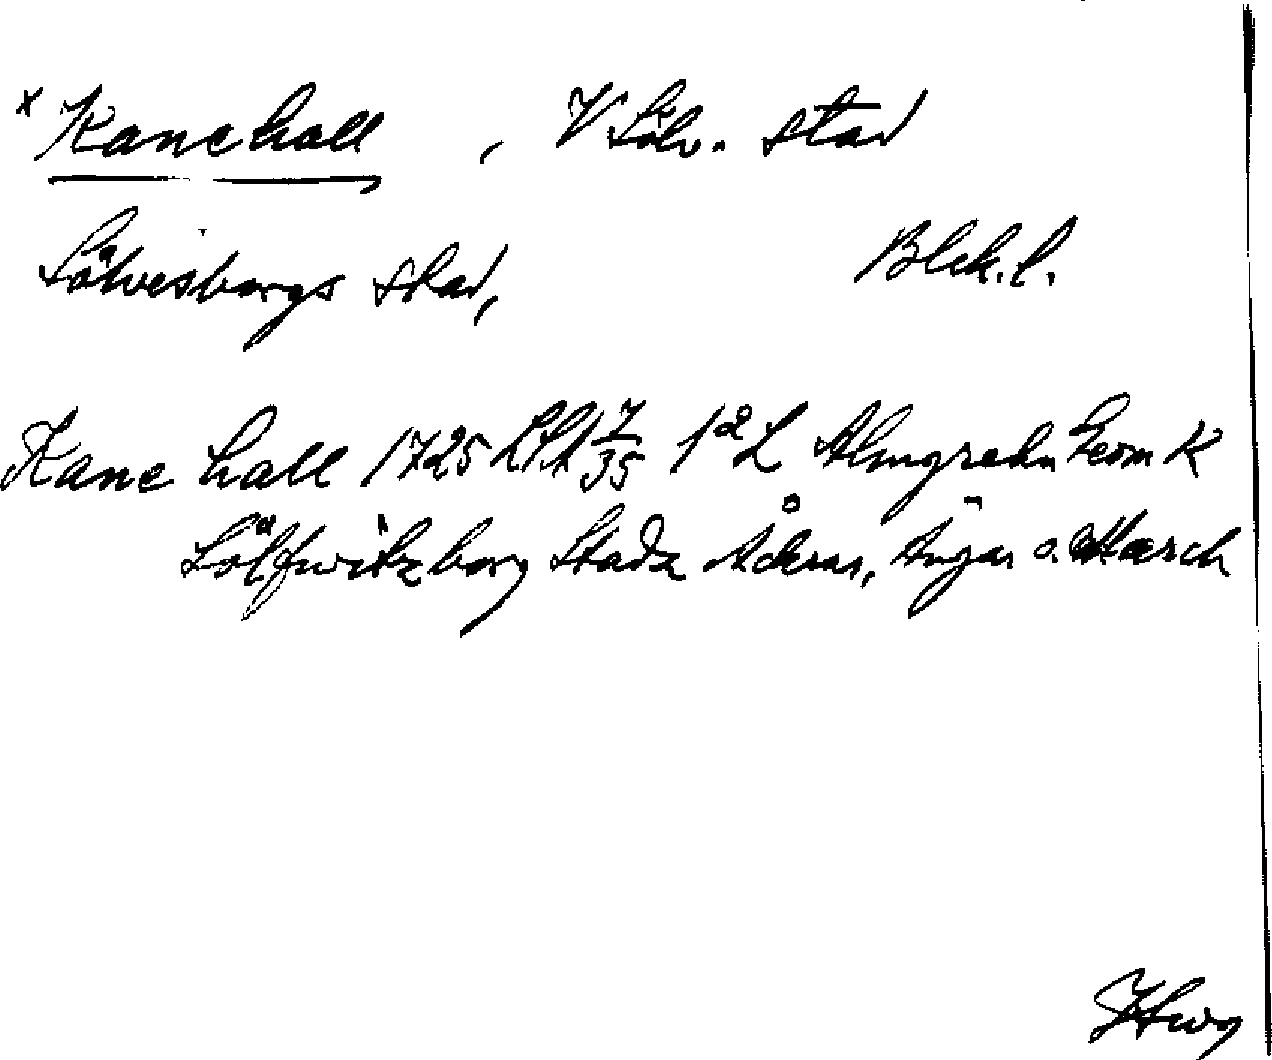 x Kanehall , V Sölv. stad
Sölvesborgs stad, Blek. l.
Kane hall 1725 LSA 7/35 1 a L Almgrehn Geom K
Sölfwitzborg Stadz Åkrar, Ängar o. March